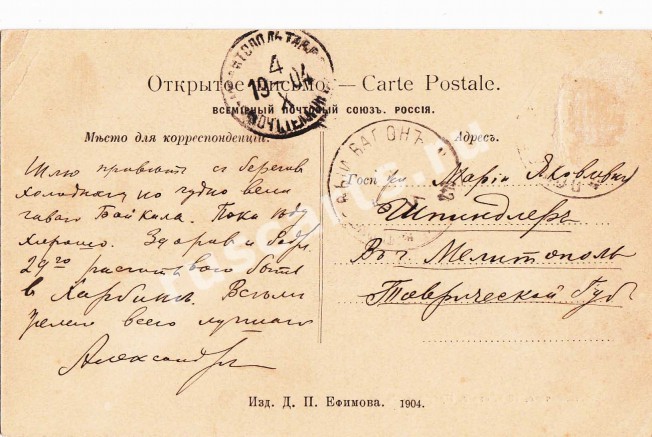 Открытое письмо. — Carte Postale.
ВСЕМІРНЫЙ ПОЧТОВЫЙ СОЮЗЪ. РОССІЯ.
Мѣсто для корреспонденціи.
Адресъ.
Шлю привѣтъ съ береговъ
холоднаго но чудно вели
чаваго Байкала. Пока ѣду
хорошо. Здоровъ и бодръ.
29го расчитываю быть
в Харбинѣ. Всѣмъ
желаю всего лучшаго
Александръ
Госп жѣ Маріи Яковлевнѣ
Шпиндлеръ
В г. Мелитополь
Таврической Губ
МЕЛИТОПОЛЬ ТАВР.
4
19 04
X
ВАГОНЪ
ruscarts.ru
Изд. Д. П. Ефимова. 1904.